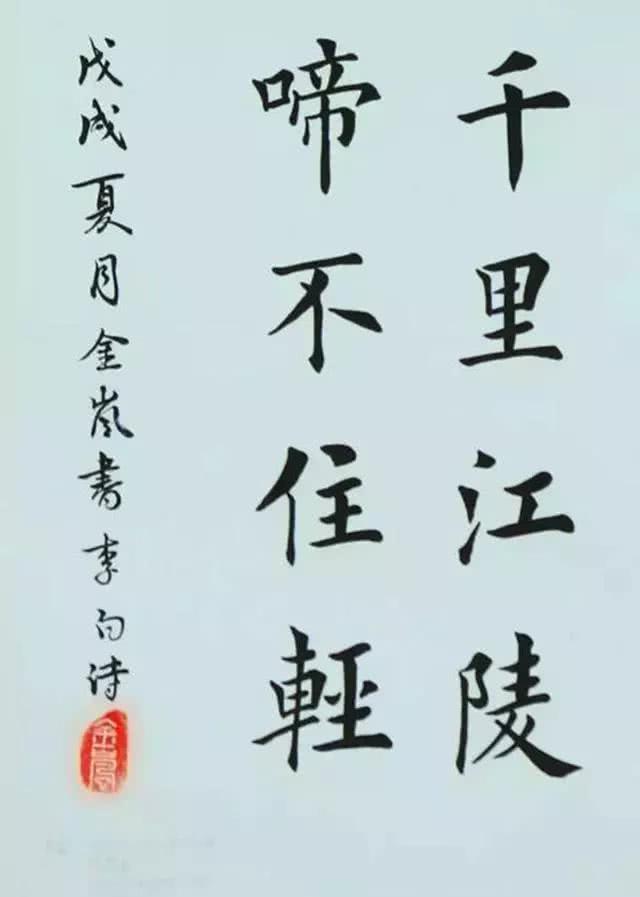 千里江陵
啼不住輕
戊戌夏月金嵐書李白詩